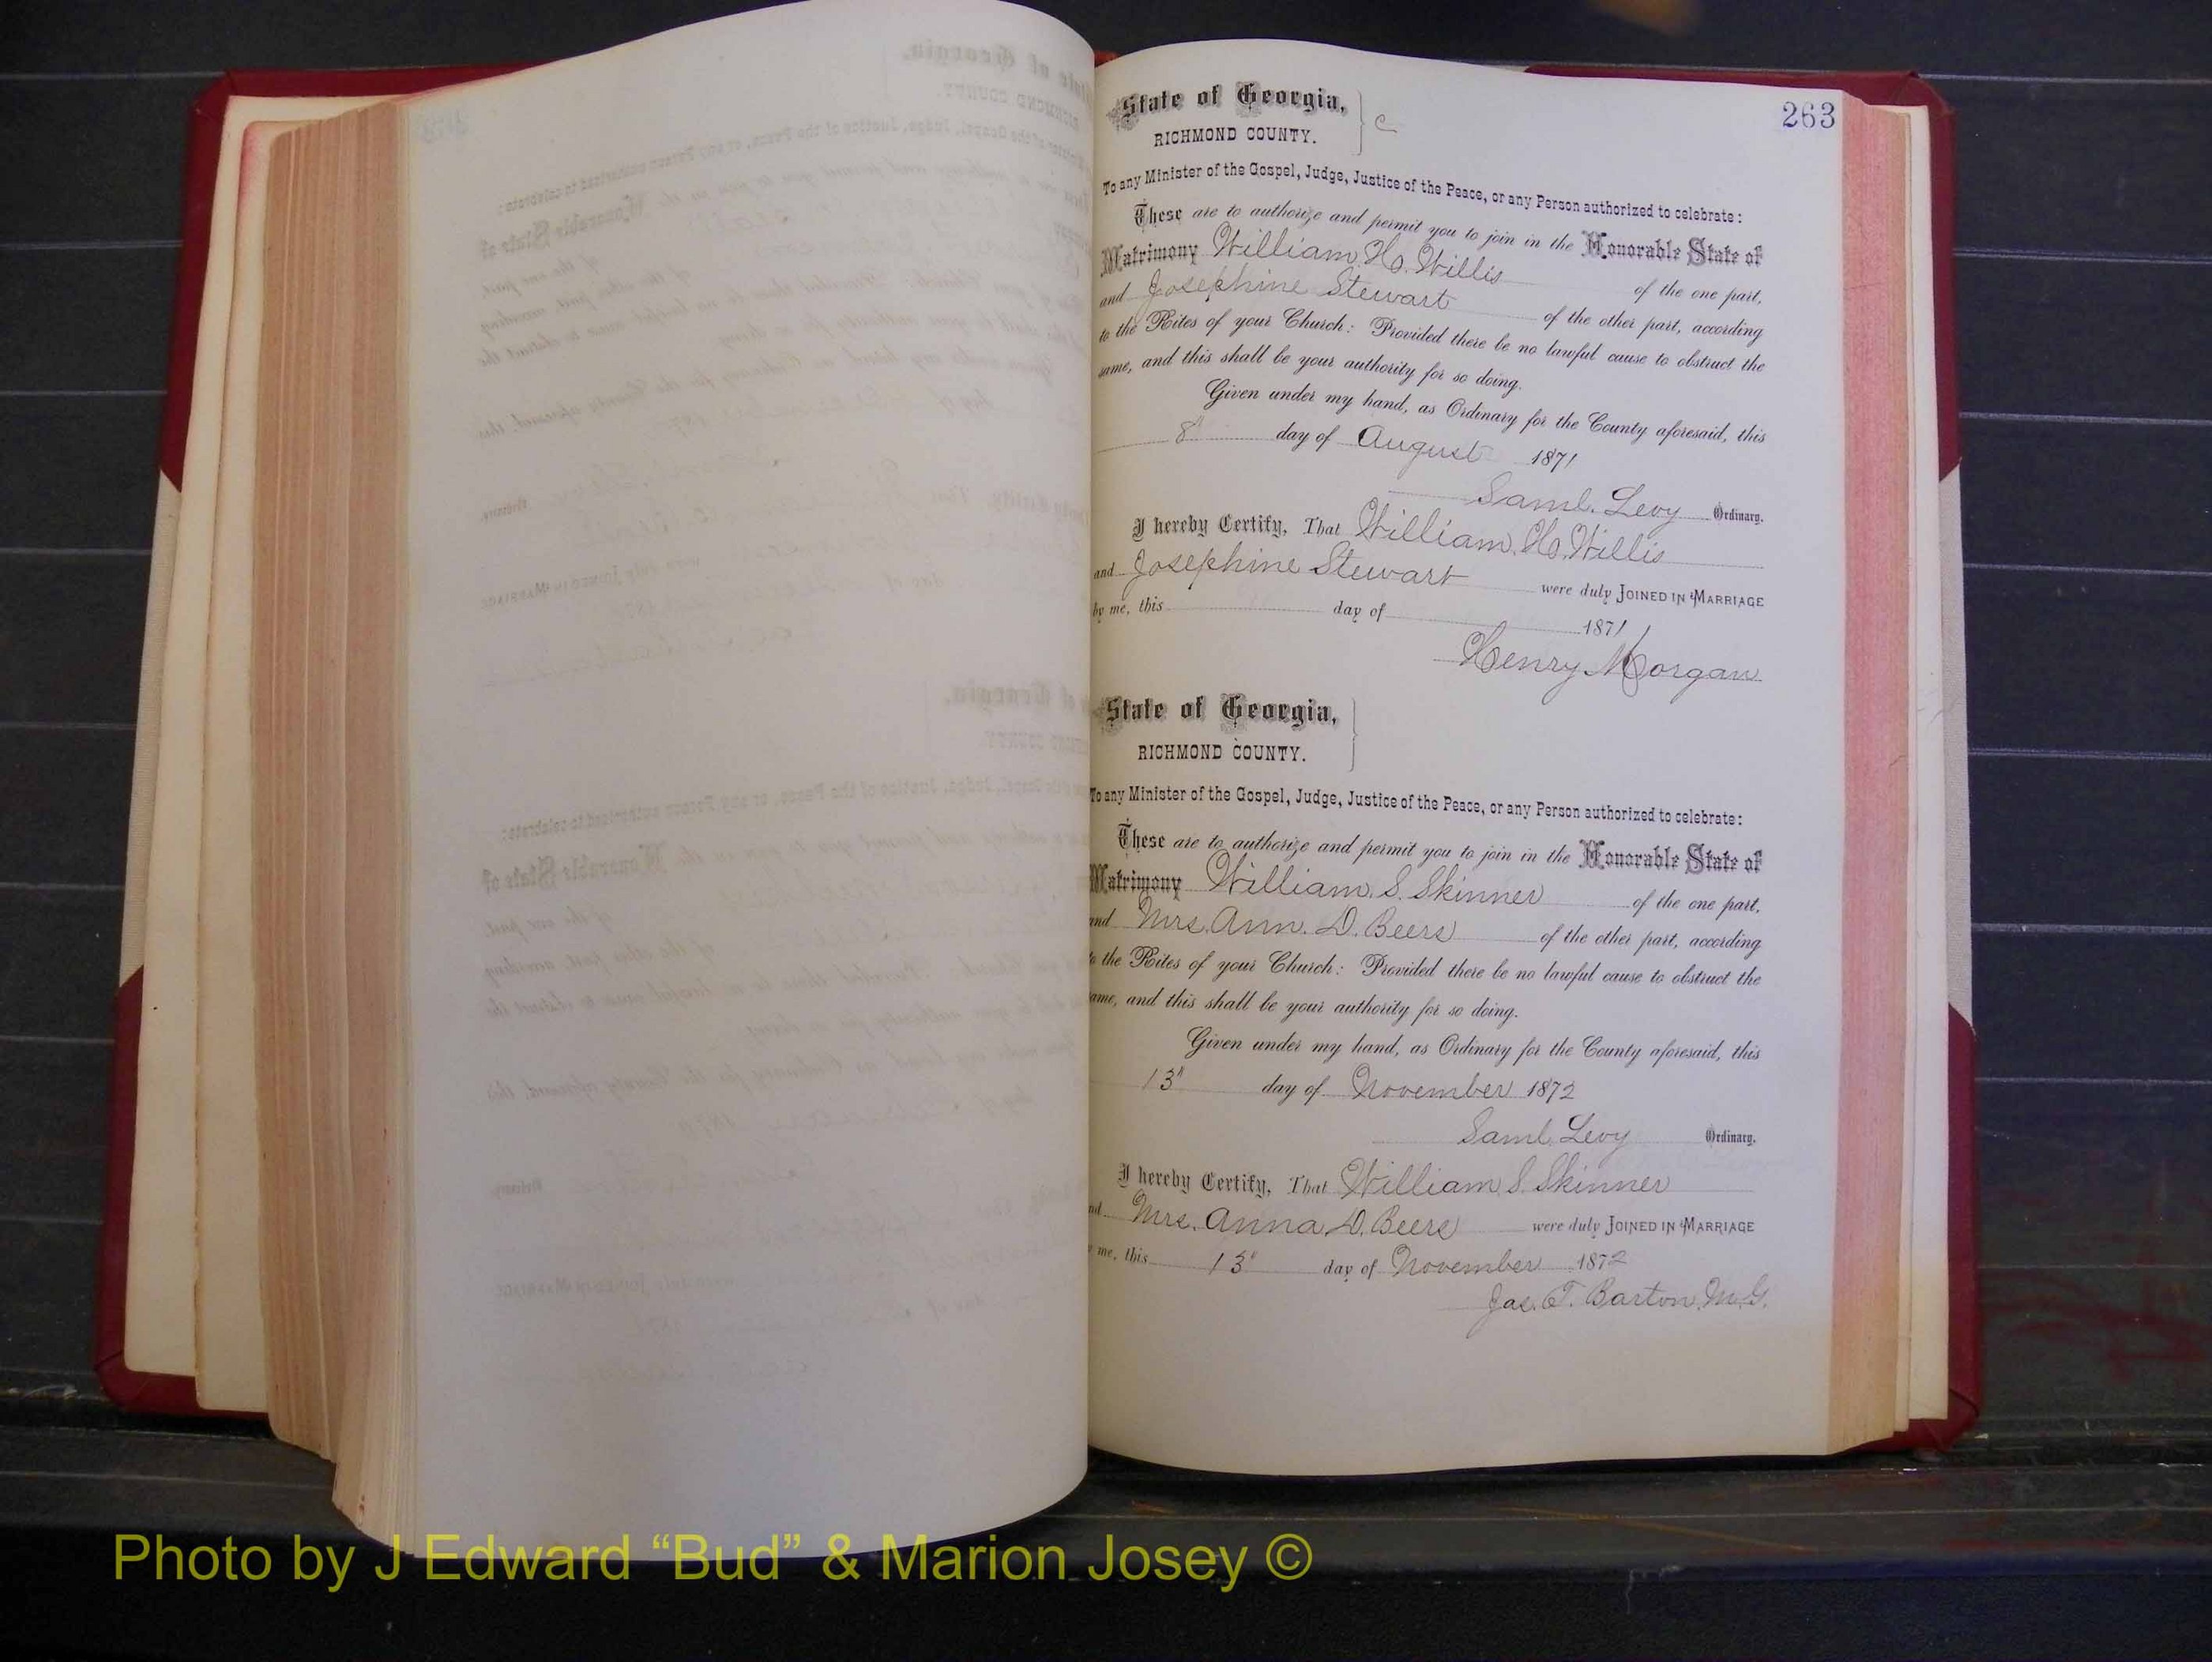 263
State of Georgia, } c
RICHMOND COUNTY.
To any Minister of the Gospel, Judge, Justice of the Peace, or any Person authorized to celebrate:
These are to authorize and permit you to join in the Honorable State of
Matrimony William H. Willis of the one part,
and Josephine Stewart of the other part, according
to the Rites of your Church: Provided there be no lawful cause to obstruct the
same, and this shall be your authority for so doing.
Given under my hand, as Ordinary for the County aforesaid, this
8" day of August 1871
Saml. Levy Ordinary.
I hereby Certify, That William. H. Willis
and Josephine Stewart were duly JOINED IN MARRIAGE
by me, this day of 1871
Henry Morgan
State of Georgia, }
RICHMOND COUNTY.
To any Minister of the Gospel, Judge, Justice of the Peace, or any Person authorized to celebrate:
These are to authorize and permit you to join in the Honorable State of
Matrimony William. S. Skinner of the one part,
and Mrs. Ann. D. Beers of the other part, according
to the Rites of your Church: Provided there be no lawful cause to obstruct the
ame, and this shall be your authority for so doing.
Given under my hand, as Ordinary for the County aforesaid, this
13" day of November 1872
Saml. Levy Ordinary.
I hereby Certify, That William S. Skinner
nd Mrs. Anna D. Beers were duly JOINED IN MARRIAGE
me, this 13" day of November 1872
Jas. T. Barton, M.G.
Photo by J Edward “Bud” & Marion Josey ©